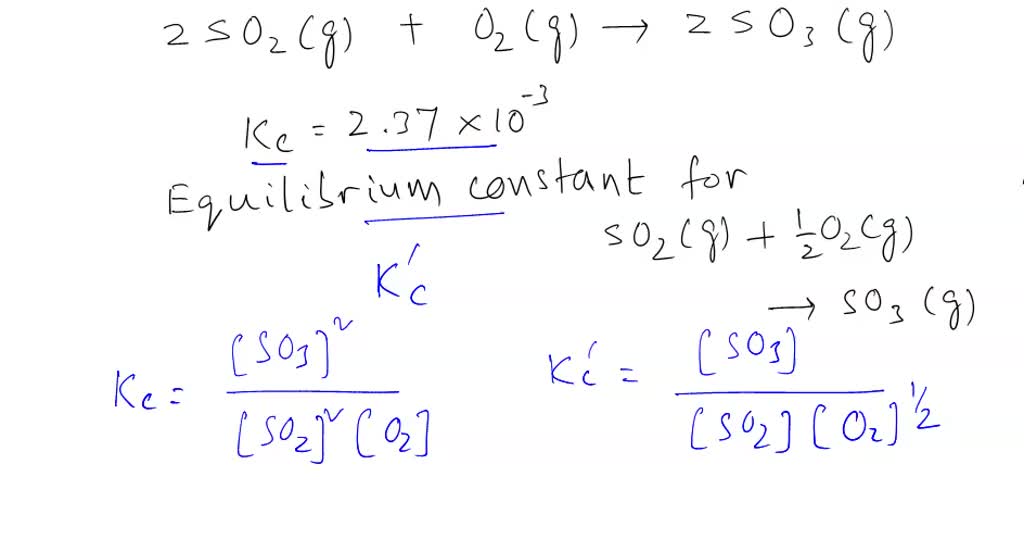 2SO₂(g) + O₂(g) → 2SO₃(g)
Kc = 2.37 × 10⁻³
Equilibrium constant for
SO₂(g) + ½O₂(g)
→ SO₃(g)
K'c
Kc = [SO₃]² / [SO₂]²[O₂]
K'c = [SO₃] / [SO₂][O₂]^½